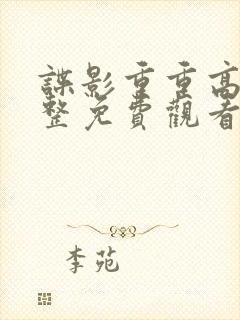 諜影重重高
整免費觀看
李苑